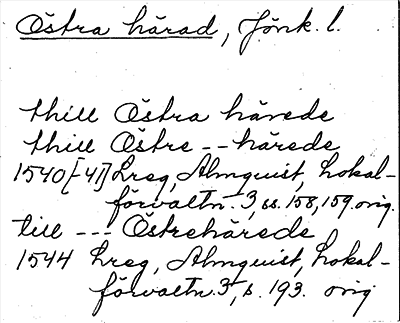 Östra härad, Jönk. l.
thill Östra härede
thill Östre -- härede
1540[-41] Lreg, Almquist, Lokal-
förvaltn. 3, ss. 158, 159. orig.
till --- Östrehärede
1544 Lreg, Almquist, Lokal-
förvaltn. 3, s. 193. orig